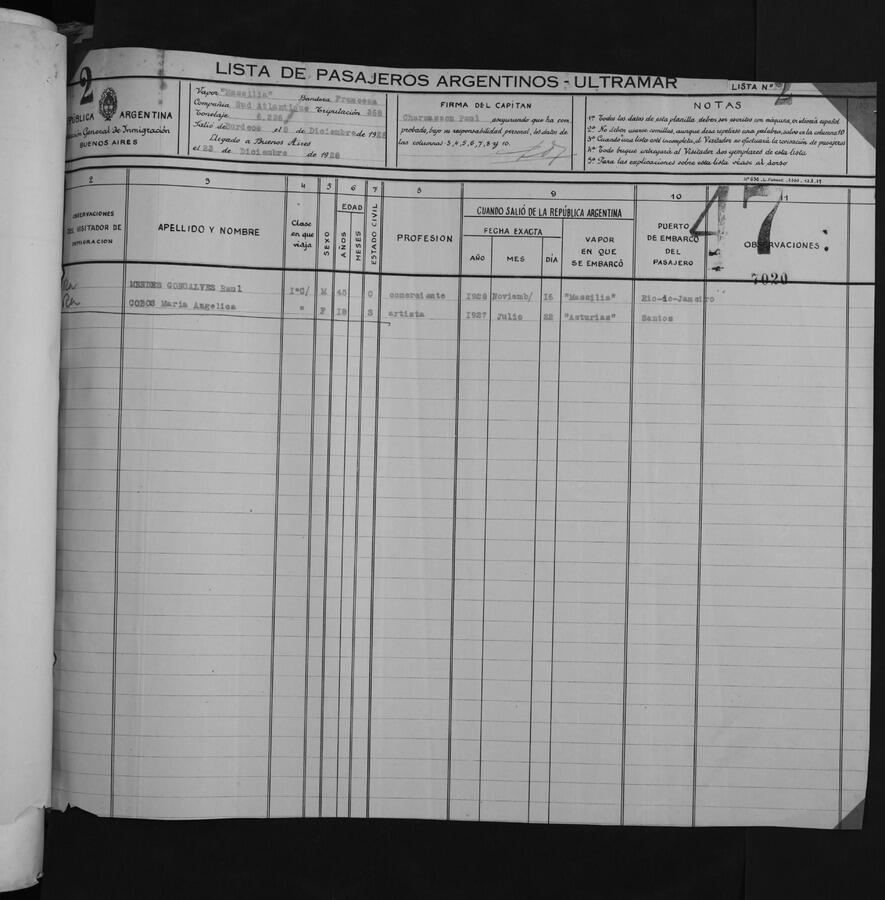 2
LISTA DE PASAJEROS ARGENTINOS - ULTRAMAR
LISTA Nº 2
PÚBLICA ARGENTINA
General de Inmigración
BUENOS AIRES
Vapor "Massilia" Bandera Francesa
Compañia Sud Atlantique Tripulación 368
Tonelaje 6.236
Salió de Burdeos el 8 de Diciembre de 1928
Llegado a Buenos Aires
el 23 de Diciembre de 1928
FIRMA DEL CAPITAN
Charmasson Paul asegurando que ha com
probado, bajo su responsabilidad personal, los datos de
las columnas 3, 4, 5, 6, 7, 8 y 10.
NOTAS
1ª Todos los datos de esta planilla deben ser escritos con máquina, en idioma español
2ª No deben usarse comillas, aunque deba repetirse una palabra, salvo en la columna 10
3ª Cuando una lista esté incompleta, el Visitador no efectuará la revisación de pasajeros
4ª Todo buque entregará al Visitador dos ejemplares de esta lista
5ª Para las explicaciones sobre esta lista véase al dorso
2 3 4 5 6 7 8 9 10 11
OBSERVACIONES
DEL VISITADOR DE
INMIGRACION
APELLIDO Y NOMBRE
Clase
en que
viaja
SEXO
EDAD
AÑOS
MESES
ESTADO CIVIL
PROFESION
CUANDO SALIÓ DE LA REPÚBLICA ARGENTINA
FECHA EXACTA
AÑO MES DÍA
VAPOR
EN QUE
SE EMBARCÓ
PUERTO
DE EMBARCO
DEL
PASAJERO
47
OBSERVACIONES
7020
MENDES GONSALVES Raul 1ªC/ M 40 C comerciante 1928 Noviemb/ 16 "Massilia" Rio-de-Janeiro
COBOS Maria Angelica " F 18 S artista 1927 Julio 22 "Asturias" Santos